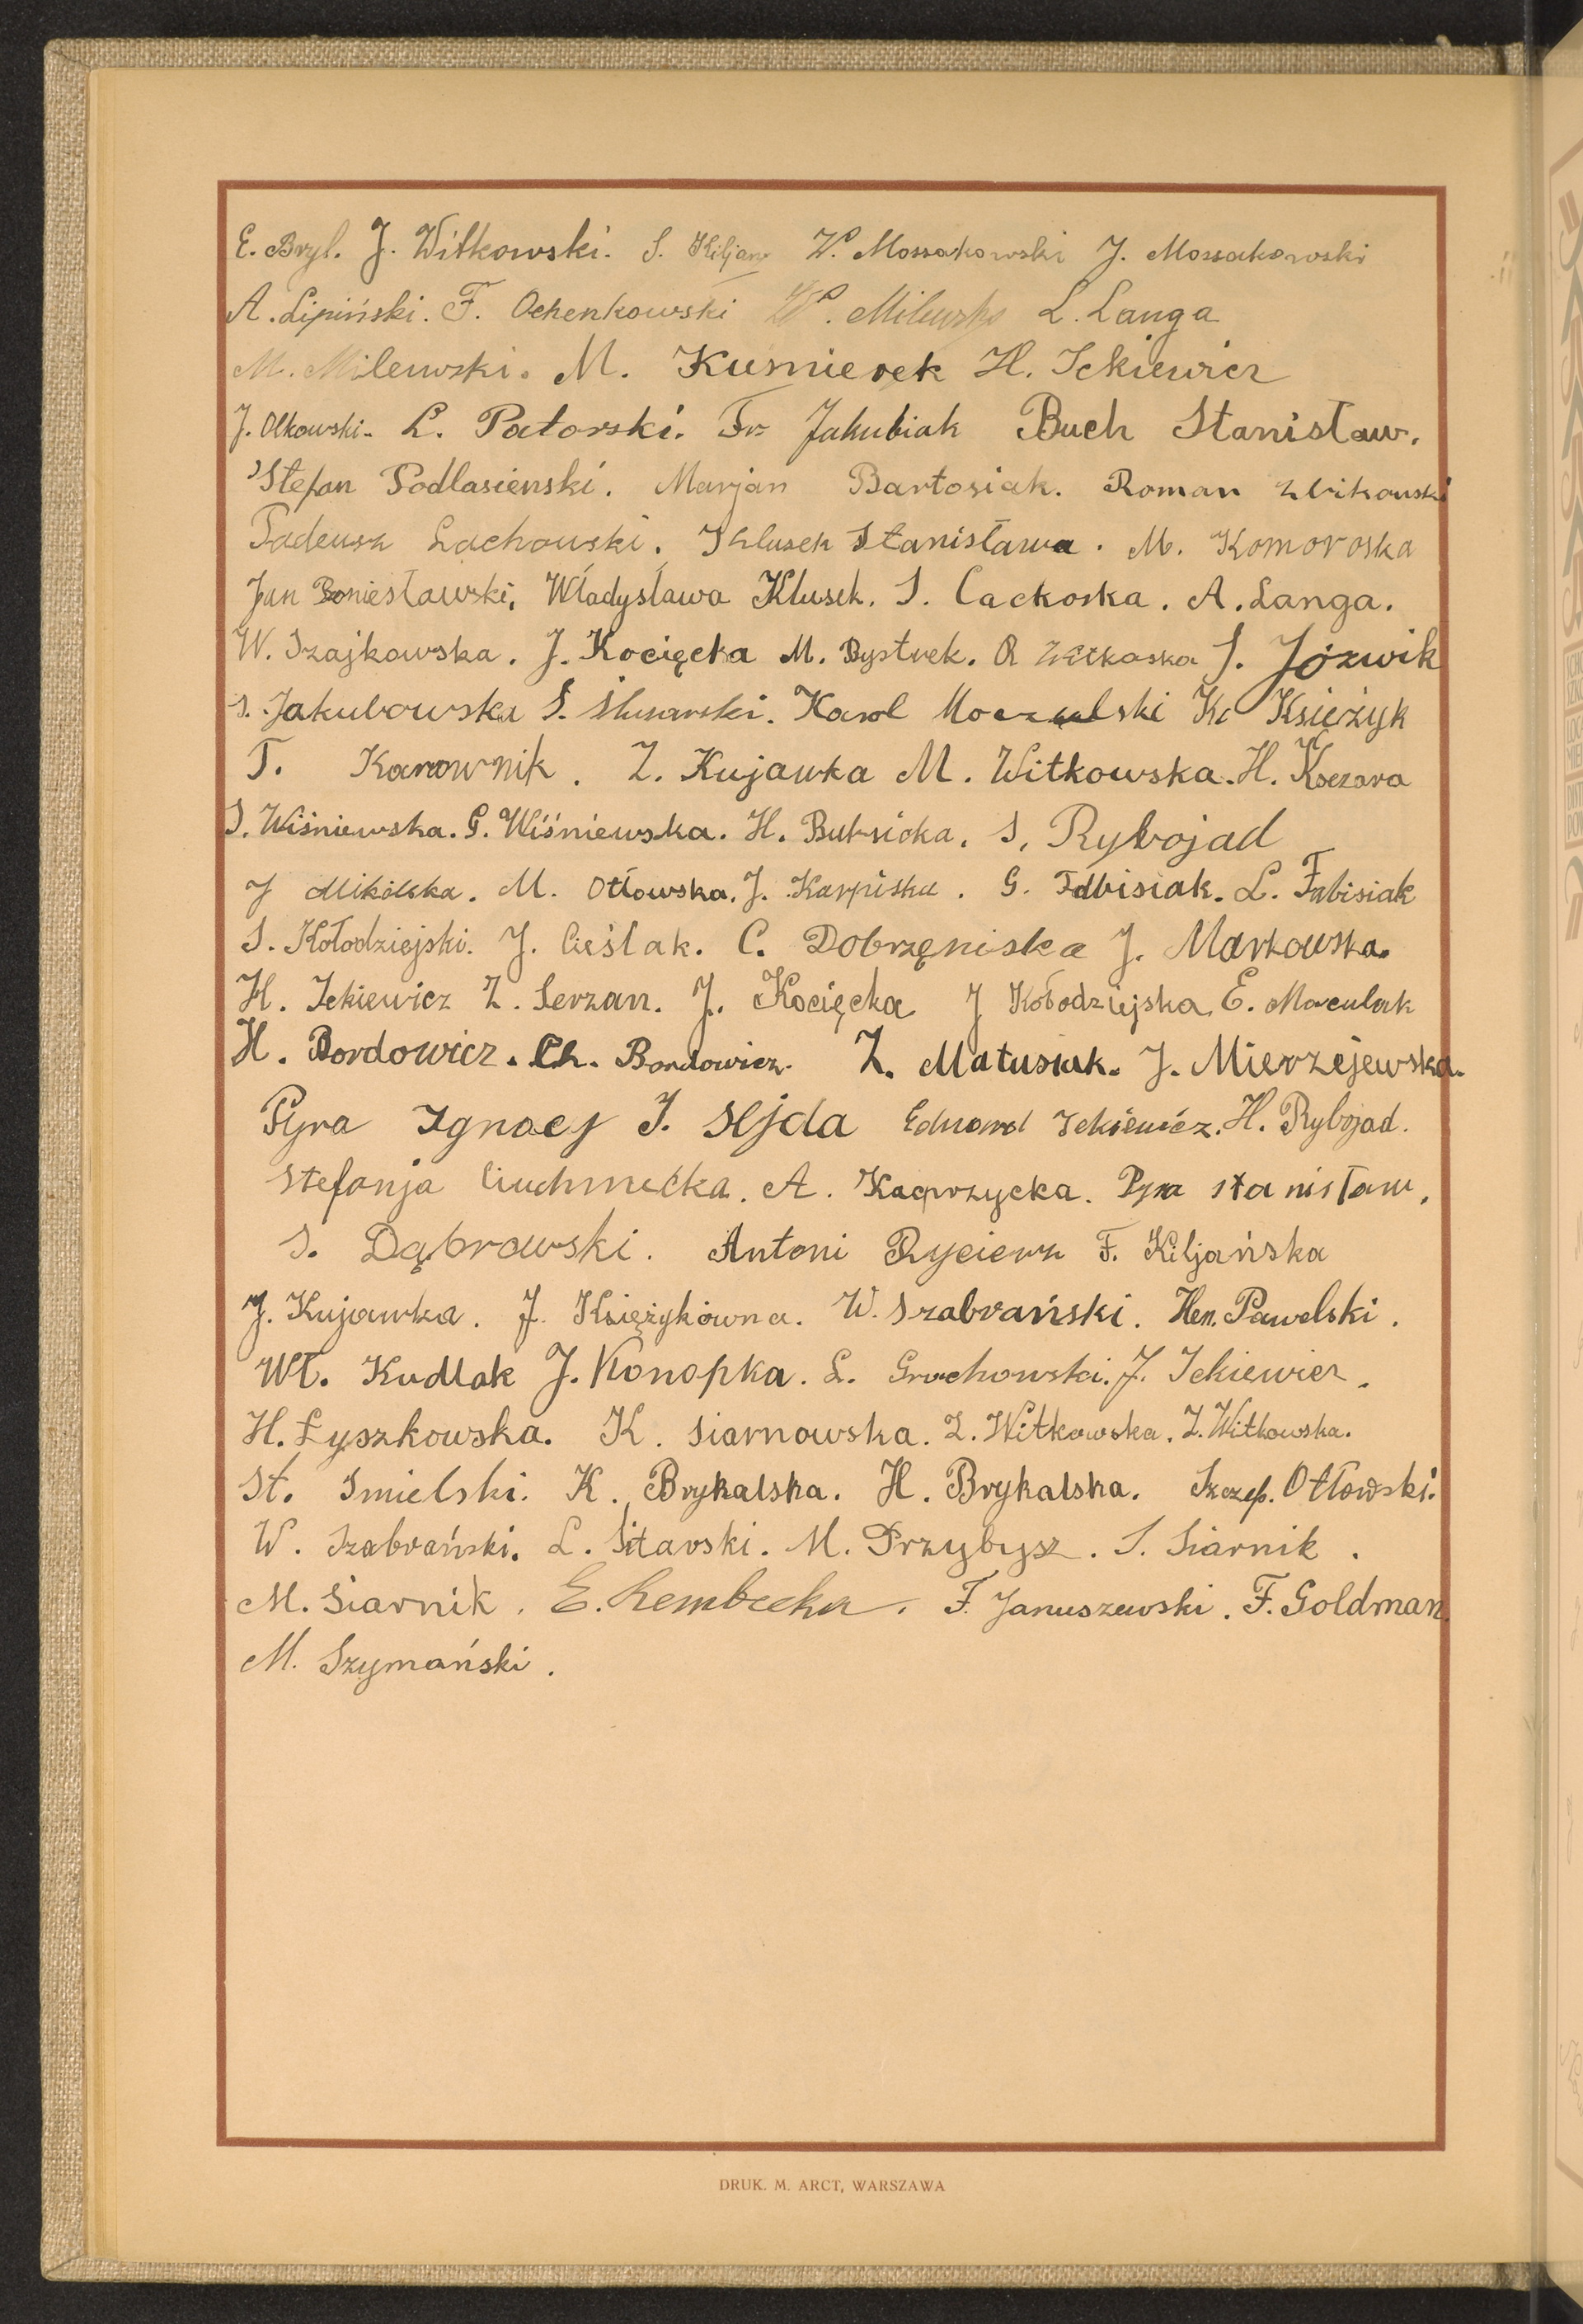 E. Bryl. J. Witkowski. S. Kiljan W. Mossakowski J. Mossakowski
A. Lipiński. F. Ochenkowski W. Milewski L. Langa
M. Milewski. M. Kusmierek H. Ickiewicz
J. Olkowski. L. Patorski. Fr. Jakubiak Buch Stanisław.
Stefan Podlasienski. Marjan Bartosiak. Roman
Tadeusz Lachowski. Klusek Stanisława. M. Komoroska
Jan Boniesławski, Władysława Klusek. S. Cackoska. A. Langa.
W. Szajkowska. J. Kocięcka M. Bystrek. R J. Józwik
S. Jakubowska S. Slusarski. Karol Moczulski Ks Ksieżyk
T. Karownik. Z. Kujawka M. Witkowska. H. Koczara
S. Wiśniewska. G. Wiśniewska. H. S. Rybojad
J M. Otłowska. J. Karpiska. G. Fabisiak. L. Fabisiak
S. Kołodziejski. J. Cieślak. C. Dobrzęniska J. Markowska.
H. Ickiewicz Z. Serzan. J. Kocięcka J Kołodziejska, E. Maculak
H. Bordowicz. Ch. Bordowicz. Z. Matusiak. J. Mierzejewska.
Pyra Ignacy J. Hejda Edward Ickiewicz. H. Rybojad.
Stefanja A. Kacprzycka. Pyra Stanisław,
S. Dąbrawski. Antoni Rycierz F. Kiljańska
J. Kujawka. J. Księżykówna. W. Szabrański. Hen. Pawelski.
Wł. Kudlak J. Konopka. L. Grochowski. J. Ickiewicz.
H. Łyszkowska. K. Siarnowska. Z. Witkowska. Z. Witkowska.
St. Smielski. K. Brykalska. H. Brykalska. Szczep. Otłowski.
W. Szabrański. L. Sitarski. M. Przybysz. S. Siarnik.
M. Siarnik. E. Rembecka. F. Januszewski. F. Goldman.
M. Szymański.
DRUK. M. ARCT, WARSZAWA